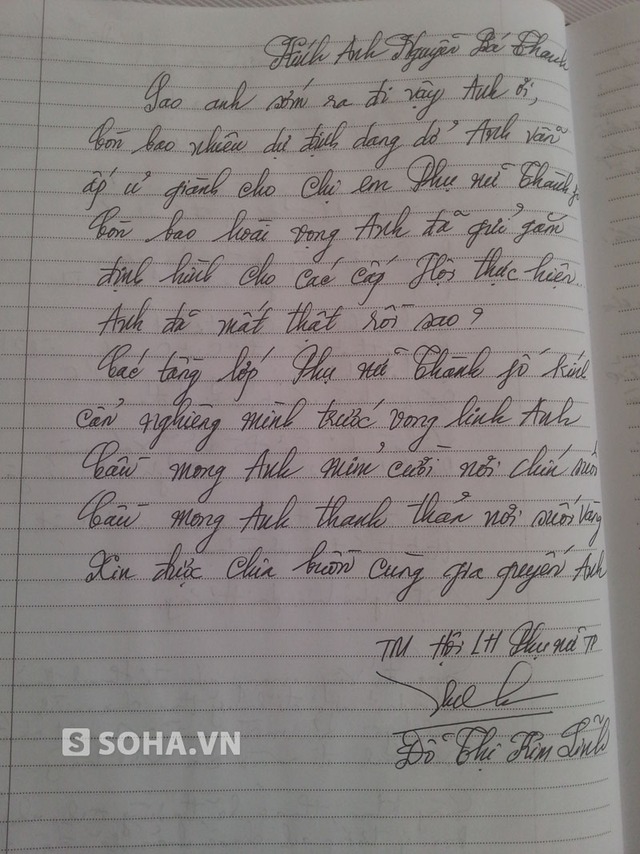 Kính Anh Nguyễn Bá Thanh
Sao anh sớm ra đi vậy Anh ơi,
Còn bao nhiêu dự định dang dở Anh vẫn
ấp ủ giành cho chị em Phụ nữ Thành
Còn bao hoài vọng Anh đã gửi gắm
định hình cho các cấp Hội thực hiện.
Anh đã mất thật rồi sao?
Các tầng lớp Phụ nữ Thành fố kính
cẩn nghiêng mình trước vong linh Anh
Cầu mong Anh mỉm cười nơi chín suối
Cầu mong Anh thanh thản nơi suối vàng
Xin được chia buồn cùng gia quyến Anh
TM Hội LH Phụ nữ TP
Đỗ Thị Kim Lĩnh
S SOHA.VN